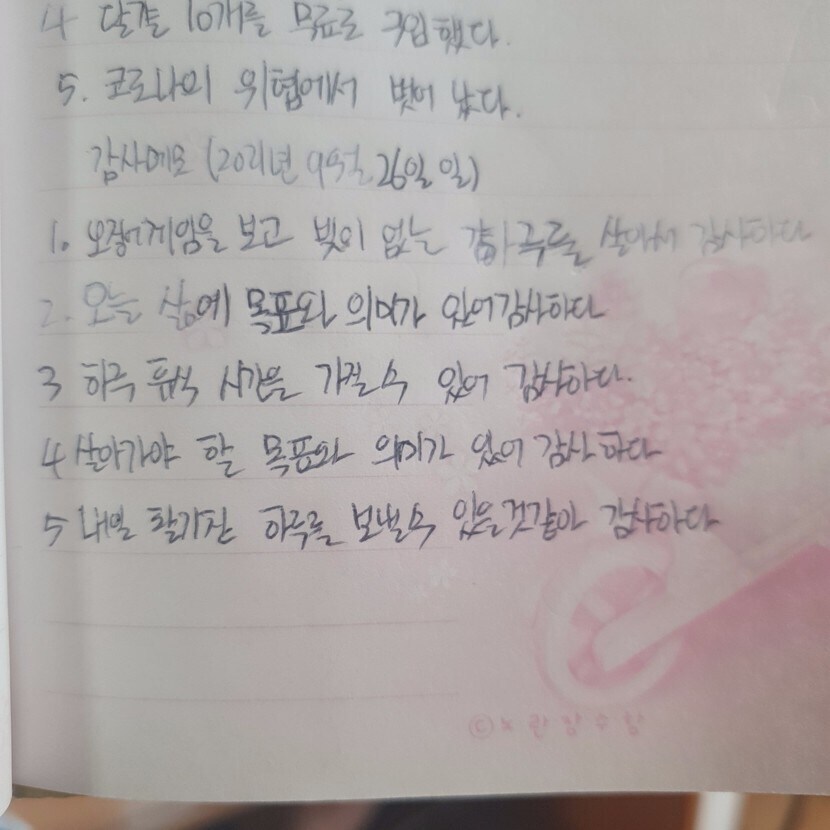 4 달걀 10개를 무료로 구입했다.
5. 코로나의 위협에서 벗어 났다.
감사메모 (2021년 9월 26일 일)
1. 오징어게임을 보고 빚이 없는 하루를 살아서 감사하다
2. 오늘 삶에 목표와 의미가 있어 감사하다
3 하루 휴식 시간을 가질 수 있어 감사하다.
4 살아가야 할 목표와 의미가 있어 감사하다
5 내일 활기찬 하루를 보낼 수 있을것같아 감사하다